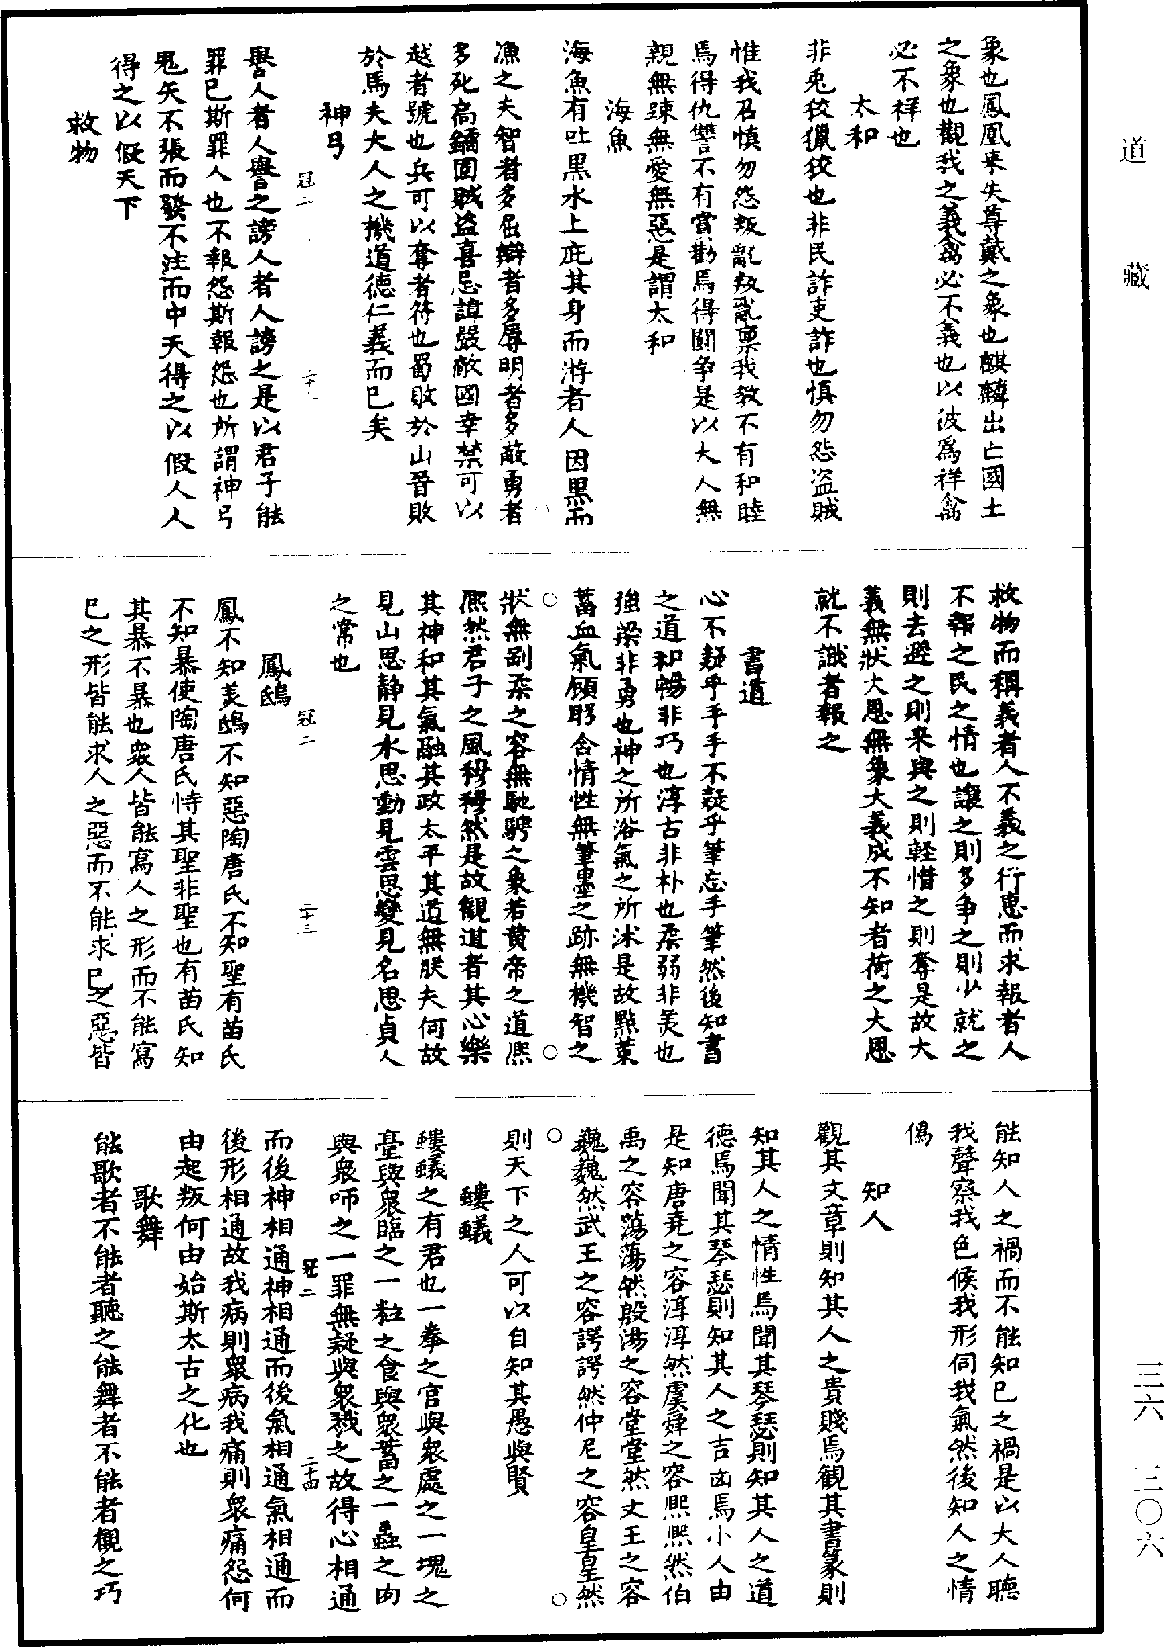 道藏
象也鳳凰來失尊戴之象也麒麟出亡國土
之象也觀我之義禽必不義也以彼爲祥禽
必不祥也
太和
非兎狡獵狡也非民詐吏詐也慎勿怨盗賊
惟我召慎勿怨叛亂叛亂禀我教不有和睦
焉得仇讐不有賞勸焉得鬭争是以大人無
親無踈無愛無惡是謂太和
海魚
海魚有吐黑水上庇其身而游者人因黑而
漁之夫智者多屈辯者多辱明者多蔽勇者
多死扃鐍固賊盗喜忌諱嚴敵國幸禁可以
越者號也兵可以奪者符也蜀敗於山晉敗
於馬夫大人之機道德仁義而已矣
神弓
譽人者人譽之謗人者人謗之是以君子能
冠二
二十二
罪已斯罪人也不報怨斯報怨也所謂神弓
鬼矢不張而發不注而中天得之以假人人
得之以假天下
救物
救物而稱義者人不義之行惠而求報者人
不報之民之情也讓之則多争之則少就之
則去避之則来與之則輕惜之則奪是故大
義無狀大恩無象大義成不知者荷之大恩
就不識者報之
書道
心不疑乎手手不疑乎筆忘手筆然後知書
之道和暢非巧也淳古非朴也柔弱非美也
強梁非勇也神之所浴氣之所沐是故點策
蓄血氣顧盻含情性無筆墨之跡無機智之
狀無剛柔之容無馳騁之象若黄帝之道熙
熙然君子之風穆穆然是故觀道者其心樂
其神和其氣融其政太平其道無朕夫何故
見山思静見水思動見雲思變見名思貞人
之常也
冠二
二十三
鳳鴟
鳳不知美鴟不知惡陶唐氏不知聖有苗氏
不知暴使陶唐氏恃其聖非聖也有苗氏知
其暴不暴也衆人皆能寫人之形而不能寫
已之形皆能求人之惡而不能求已之惡皆
能知人之禍而不能知已之禍是以大人聽
我聲察我色候我形伺我氣然後知人之情
僞
知人
觀其文章則知其人之貴賤焉觀其書篆則
知其人之情性焉聞其琴瑟則知其人之道
德焉聞其琴瑟則知其人之吉凶焉小人由
是知唐堯之容淳淳然虞舜之容熙熙然伯
禹之容蕩蕩然殷湯之容堂堂然文王之容
巍巍然武王之容諤諤然仲尼之容皇皇然
則天下之人可以自知其愚與賢
螻蟻
螻蟻之有君也一拳之宫與衆處之一塊之
臺與衆臨之一粒之食與衆蓄之一蟲之肉
與衆咂之一罪無疑與衆戮之故得心相通
冠二
二十四
而後神相通神相通而後氣相通氣相通而
後形相通故我病則衆病我痛則衆痛怨何
由起叛何由始斯太古之化也
歌舞
能歌者不能者聽之能舞者不能者觀之巧
三六
三〇六